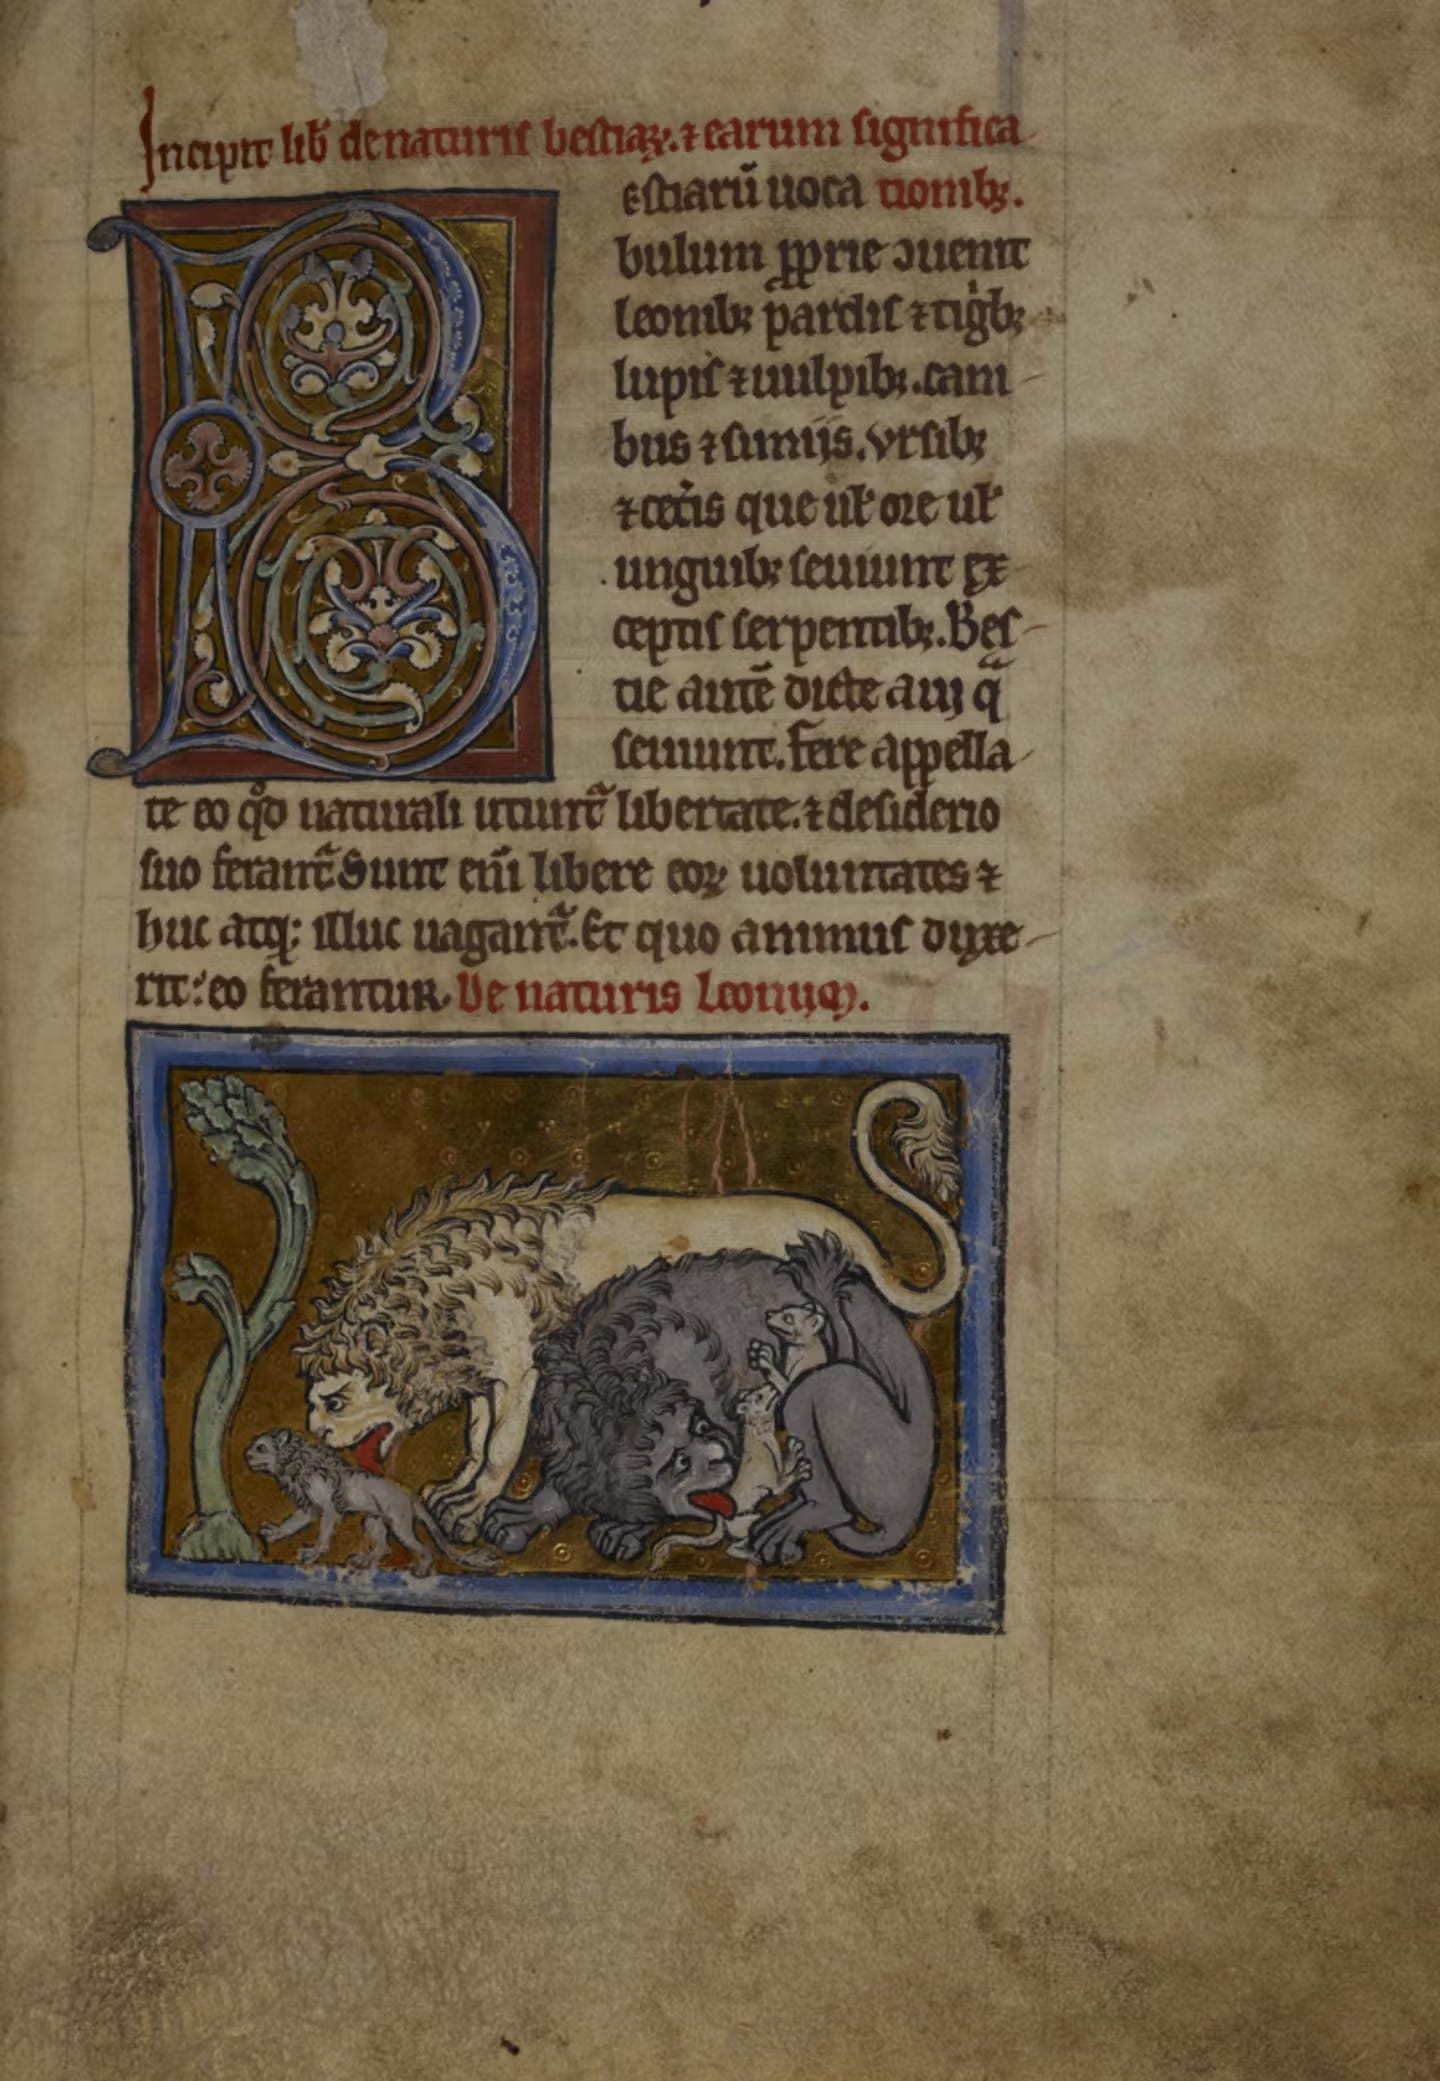 Incipit lib̄ de naturis bestiaꝝ. ⁊ earum significa
estiarū uoca tionibꝫ.
bulum ꝓprie ↄuenit
leonibꝫ pardis ⁊ tigͥbꝫ
lupis ⁊ uulpibꝫ. cani
bus ⁊ simijs. vrsibꝫ
⁊ cet̉is que ul̓ ore ul̓
unguibꝫ seuiunt ex
ceptis serpentibꝫ. Bes
tie autē dicte a ui qͣ
seuiunt. fere appella
te eo qͦd naturali utunt᷑ libertate. ⁊ desiderio
suo ferant᷑ Sunt eni̅ libere eoꝝ uoluntates ⁊
huc atqꝫ illuc uagant᷑. Et quo animus duxe
rit: eo ferantur. De naturis Leonum.